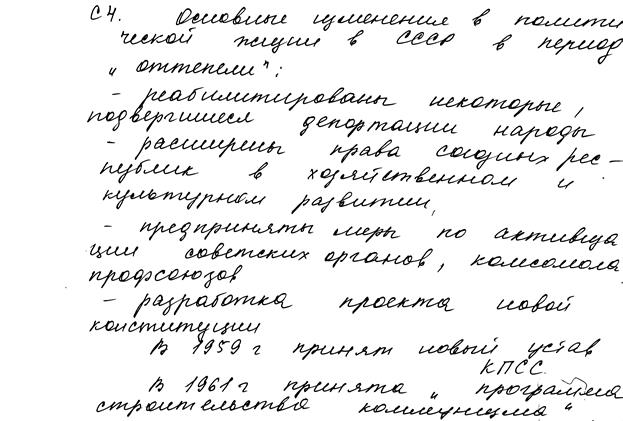 С4. Основные изменения в полити
ческой жизни в СССР в период
„ оттепели":
- реабилитированы некоторые,
подвергшиеся депортации народы
- расширены права союзных рес-
публик в хозяйственном и
культурном развитии,
- предприняты меры по активиза
ции советских органов, комсомола,
профсоюзов
- разработка проекта новой
конституции
В 1959 г принят новый устав
КПСС.
В 1961 г принята „ программа
строительства коммунизма "